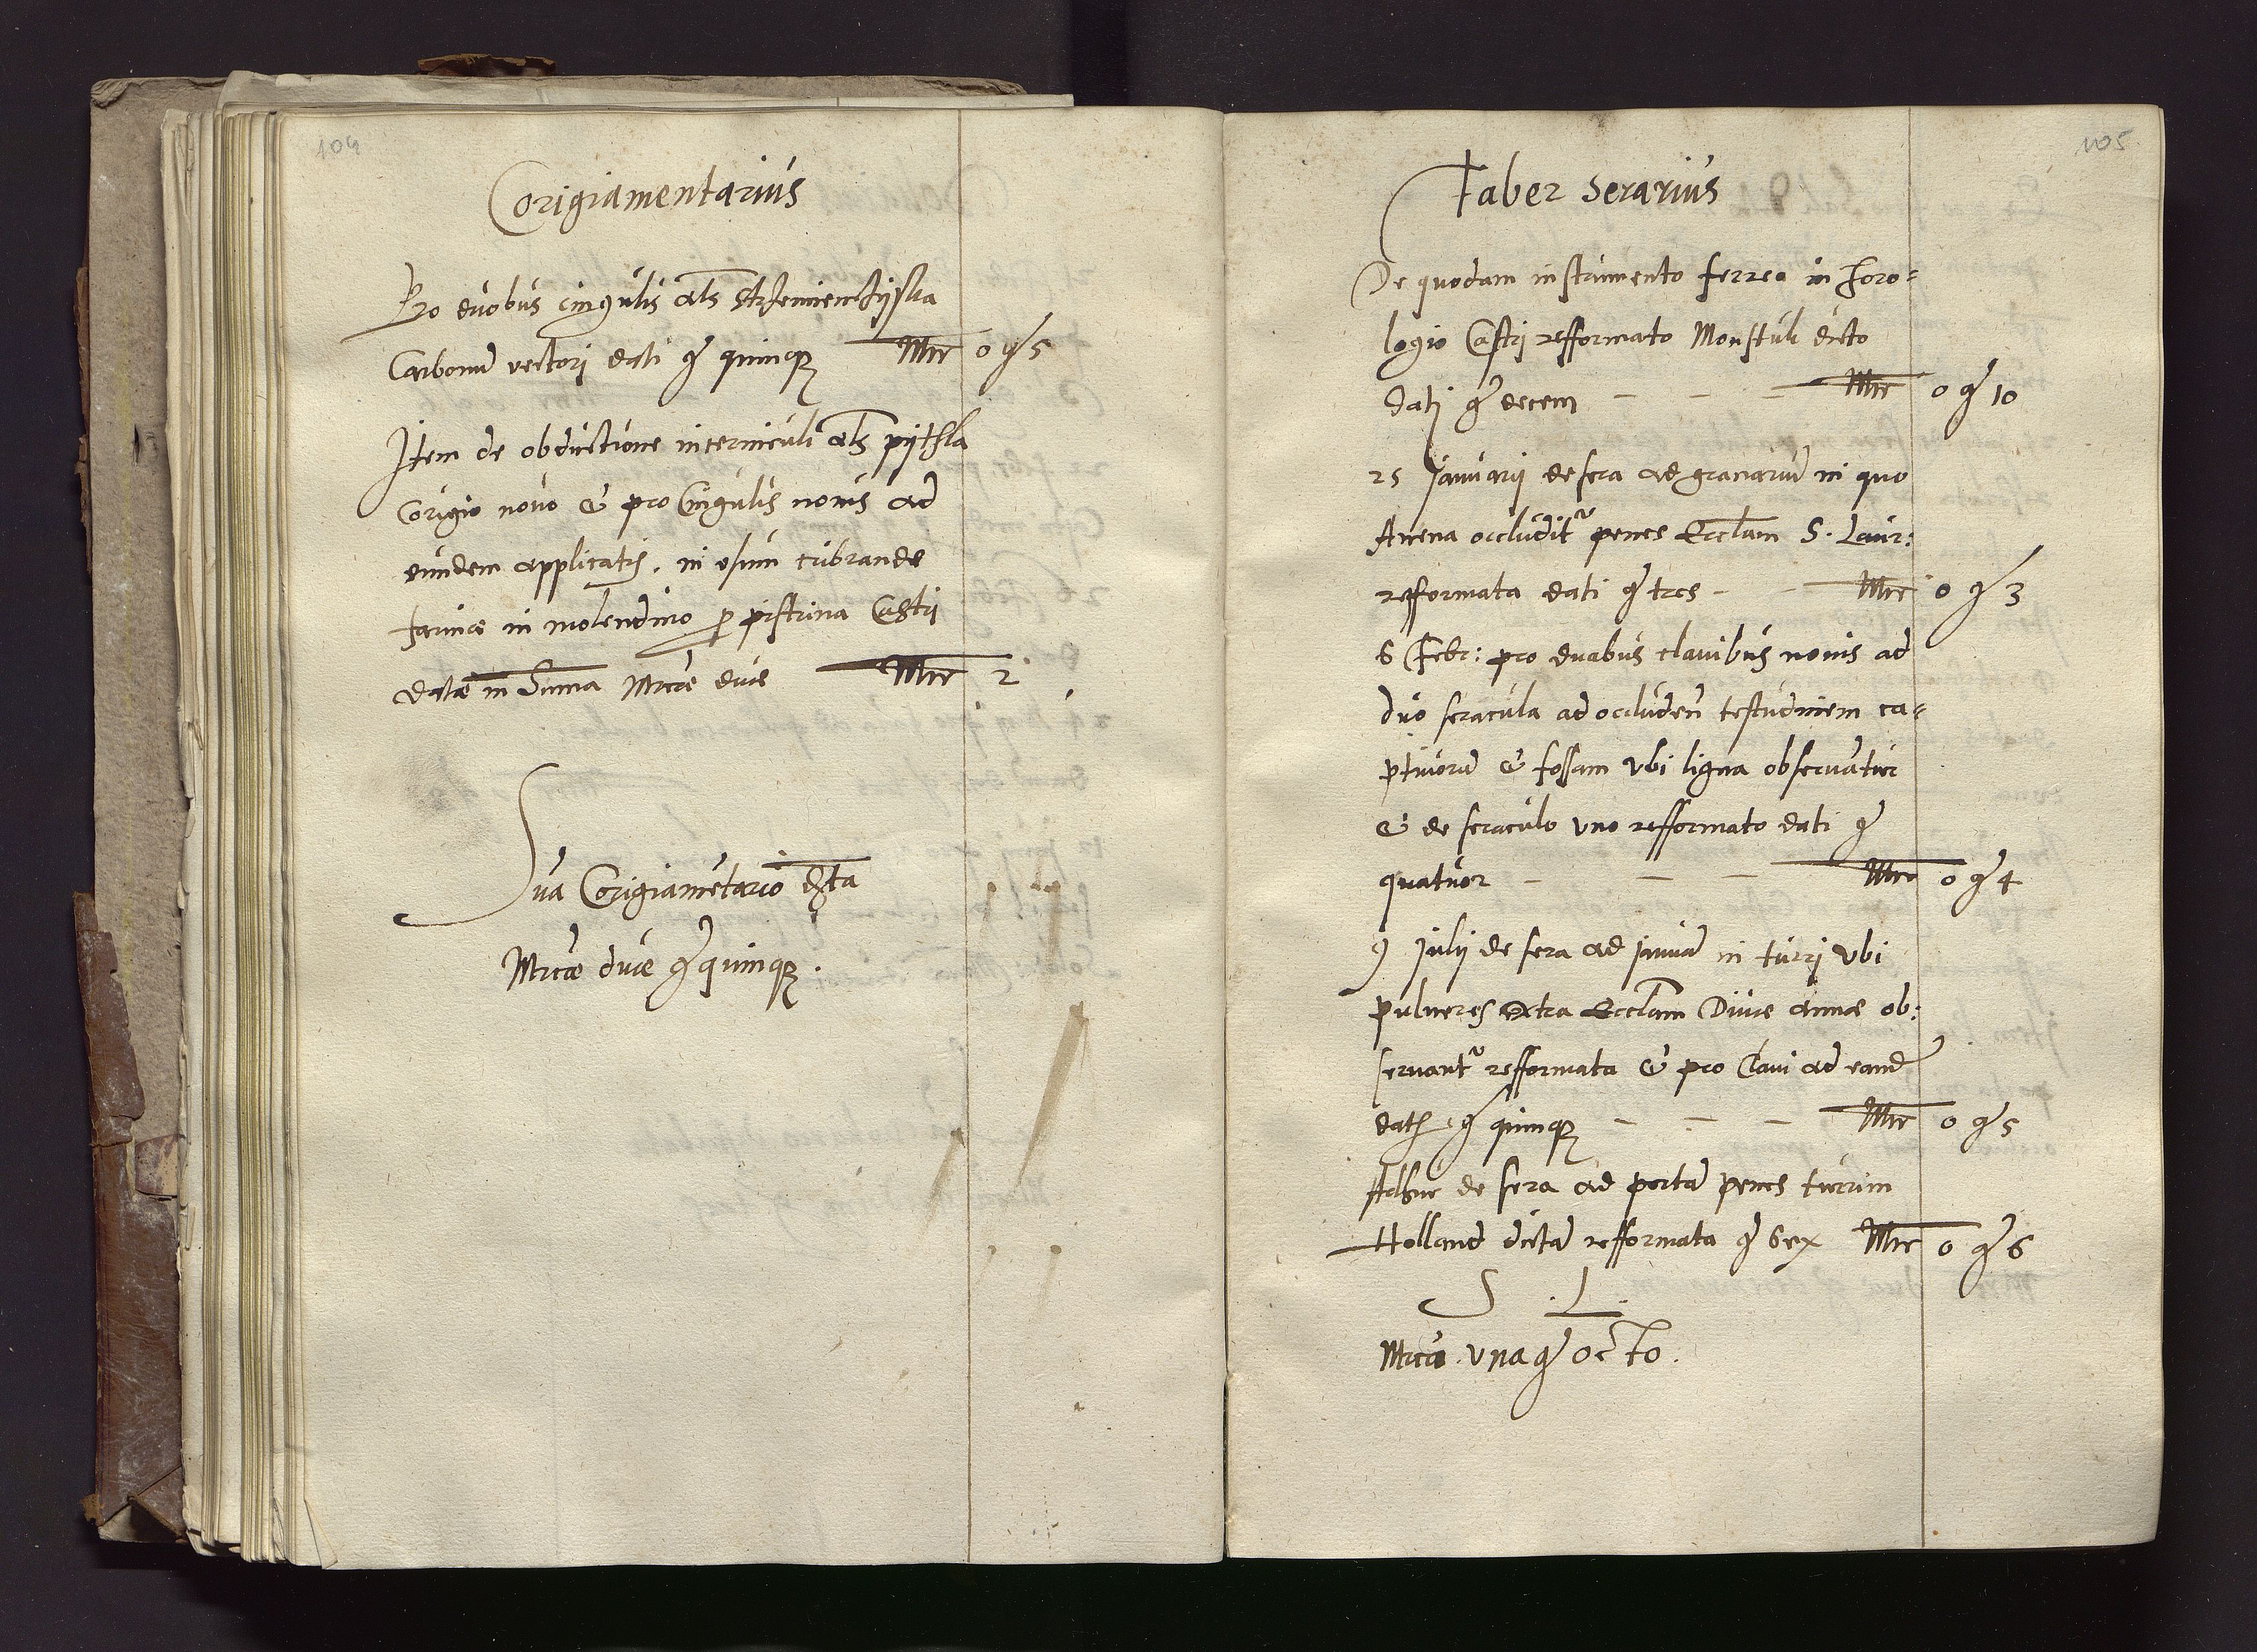 104
Corigiamentarius
Pro duobus cingulis als
Carbonu vectori dati g quinq Mrc 0 g 5
Item de obductione incerniculi als pythla
Corigio novo & pro Cingulis novis ad
eundem applicatis, in usum cribrandae
farinae in molendino p pistrina Castri
datae in Suma Mrcae duae Mrc 2
Sua Corigiametario data
Mrcae duae g quinq.
105
Faber Serarius
De quodam instrumento ferreo in horo=
logio Castri refformato Monstuli dicto
Dati g decem - - - Mrc 0 g 10
25 Januarij de sera ad granariu in quo
Avena occludit penes Ecclam S. Laur:
refformata dati g tres - - Mrc 0 g 3
6 Febr: pro duabus clavibus novis ad
duo seracula ad occluden testudinem ca=
ptivoru & fossam ubi ligna observatur
& de seraculo uno refformato dati g
quatuor - - - Mrc 0 g 4
9 Julij de sera ad januā in turri ubi
pulveres extra Ecclam Divae Annae ob:
servant refformata & pro Clavi ad eand
datj g quinq - - - Mrc 0 g 5
Adhuc de sera ad portā penes turrim
Holland dictā refformata g sex Mrc 0 g 6
S . L .
Mrca una g octo.